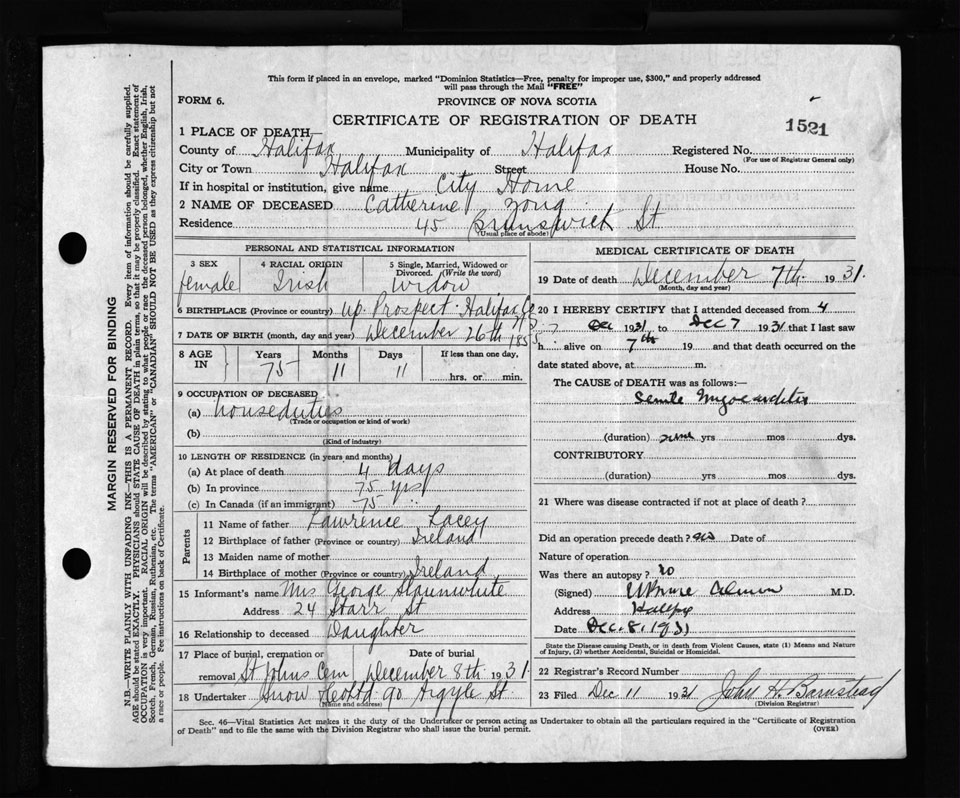 This form if placed in an envelope, marked "Dominion Statistics—Free, penalty for improper use, $300," and properly addressed
will pass through the Mail "FREE"
FORM 6.
PROVINCE OF NOVA SCOTIA
CERTIFICATE OF REGISTRATION OF DEATH
1521
1 PLACE OF DEATH—
County of Halifax Municipality of Halifax Registered No.
(For use of Registrar General only)
City or Town Halifax Street House No.
If in hospital or institution, give name City Home
2 NAME OF DECEASED Catherine Zong
Residence 45 Brunswick St
(Usual place of abode)
PERSONAL AND STATISTICAL INFORMATION
3 SEX 4 RACIAL ORIGIN 5 Single, Married, Widowed or
Divorced. (Write the word)
female Irish Widow
6 BIRTHPLACE (Province or country) Up. Prospect Halifax Co
N S
7 DATE OF BIRTH (month, day and year) December 26th 1855
8 AGE IN Years Months Days If less than one day,
75 11 11 hrs. or min.
9 OCCUPATION OF DECEASED
(a) houseduties
(Trade or occupation or kind of work)
(b)
(Kind of industry)
10 LENGTH OF RESIDENCE (in years and months)
(a) At place of death 4 days
(b) In province 75 yrs
(c) In Canada (if an immigrant) 75
Parents
11 Name of father Lawrence Lacey
12 Birthplace of father (Province or country) Ireland
13 Maiden name of mother
14 Birthplace of mother (Province or country) Ireland
15 Informant's name Mrs George Slaunwhite
Address 24 Starr St
16 Relationship to deceased Daughter
17 Place of burial, cremation or Date of burial
removal St Johns Cem December 8th 1931.
18 Undertaker Snow & Co Ltd 90 Argyle St
(Name and address)
MEDICAL CERTIFICATE OF DEATH
19 Date of death December 7th 1931.
(Month, day and year)
20 I HEREBY CERTIFY that I attended deceased from 4
Dec 1931 to Dec 7 1931 that I last saw
h alive on 7th 19 and that death occurred on the
date stated above, at m.
The CAUSE of DEATH was as follows:—
Senile Myocarditis
(duration) yrs mos dys.
CONTRIBUTORY
(duration) yrs mos dys.
21 Where was disease contracted if not at place of death?
Did an operation precede death? no Date of
Nature of operation
Was there an autopsy? no
(Signed) M.D.
Address Halifax
Date Dec. 8, 1931
State the Disease causing Death, or in death from Violent Causes, state (1) Means and Nature
of Injury, (2) whether Accidental, Suicidal or Homicidal.
22 Registrar's Record Number
23 Filed Dec 11 1931 John H. Barnstead
(Division Registrar)
Sec. 46—Vital Statistics Act makes it the duty of the Undertaker or person acting as Undertaker to obtain all the particulars required in the "Certificate of Registration
of Death" and to file the same with the Division Registrar who shall issue the burial permit.
(OVER)
MARGIN RESERVED FOR BINDING
N.B.—WRITE PLAINLY WITH UNFADING INK—THIS IS A PERMANENT RECORD. Every item of information should be carefully supplied.
AGE should be stated EXACTLY. PHYSICIANS should STATE CAUSE OF DEATH in plain terms, so that it may be properly classified. Exact statement of
OCCUPATION is very important. RACIAL ORIGIN will be described by stating to what people or race the deceased person belonged, whether English, Irish,
Scotch, French, German, Russian, Ruthenian, etc. The terms "AMERICAN" or "CANADIAN" SHOULD NOT BE USED as they express citizenship but not
a race or people. See instructions on back of Certificate.